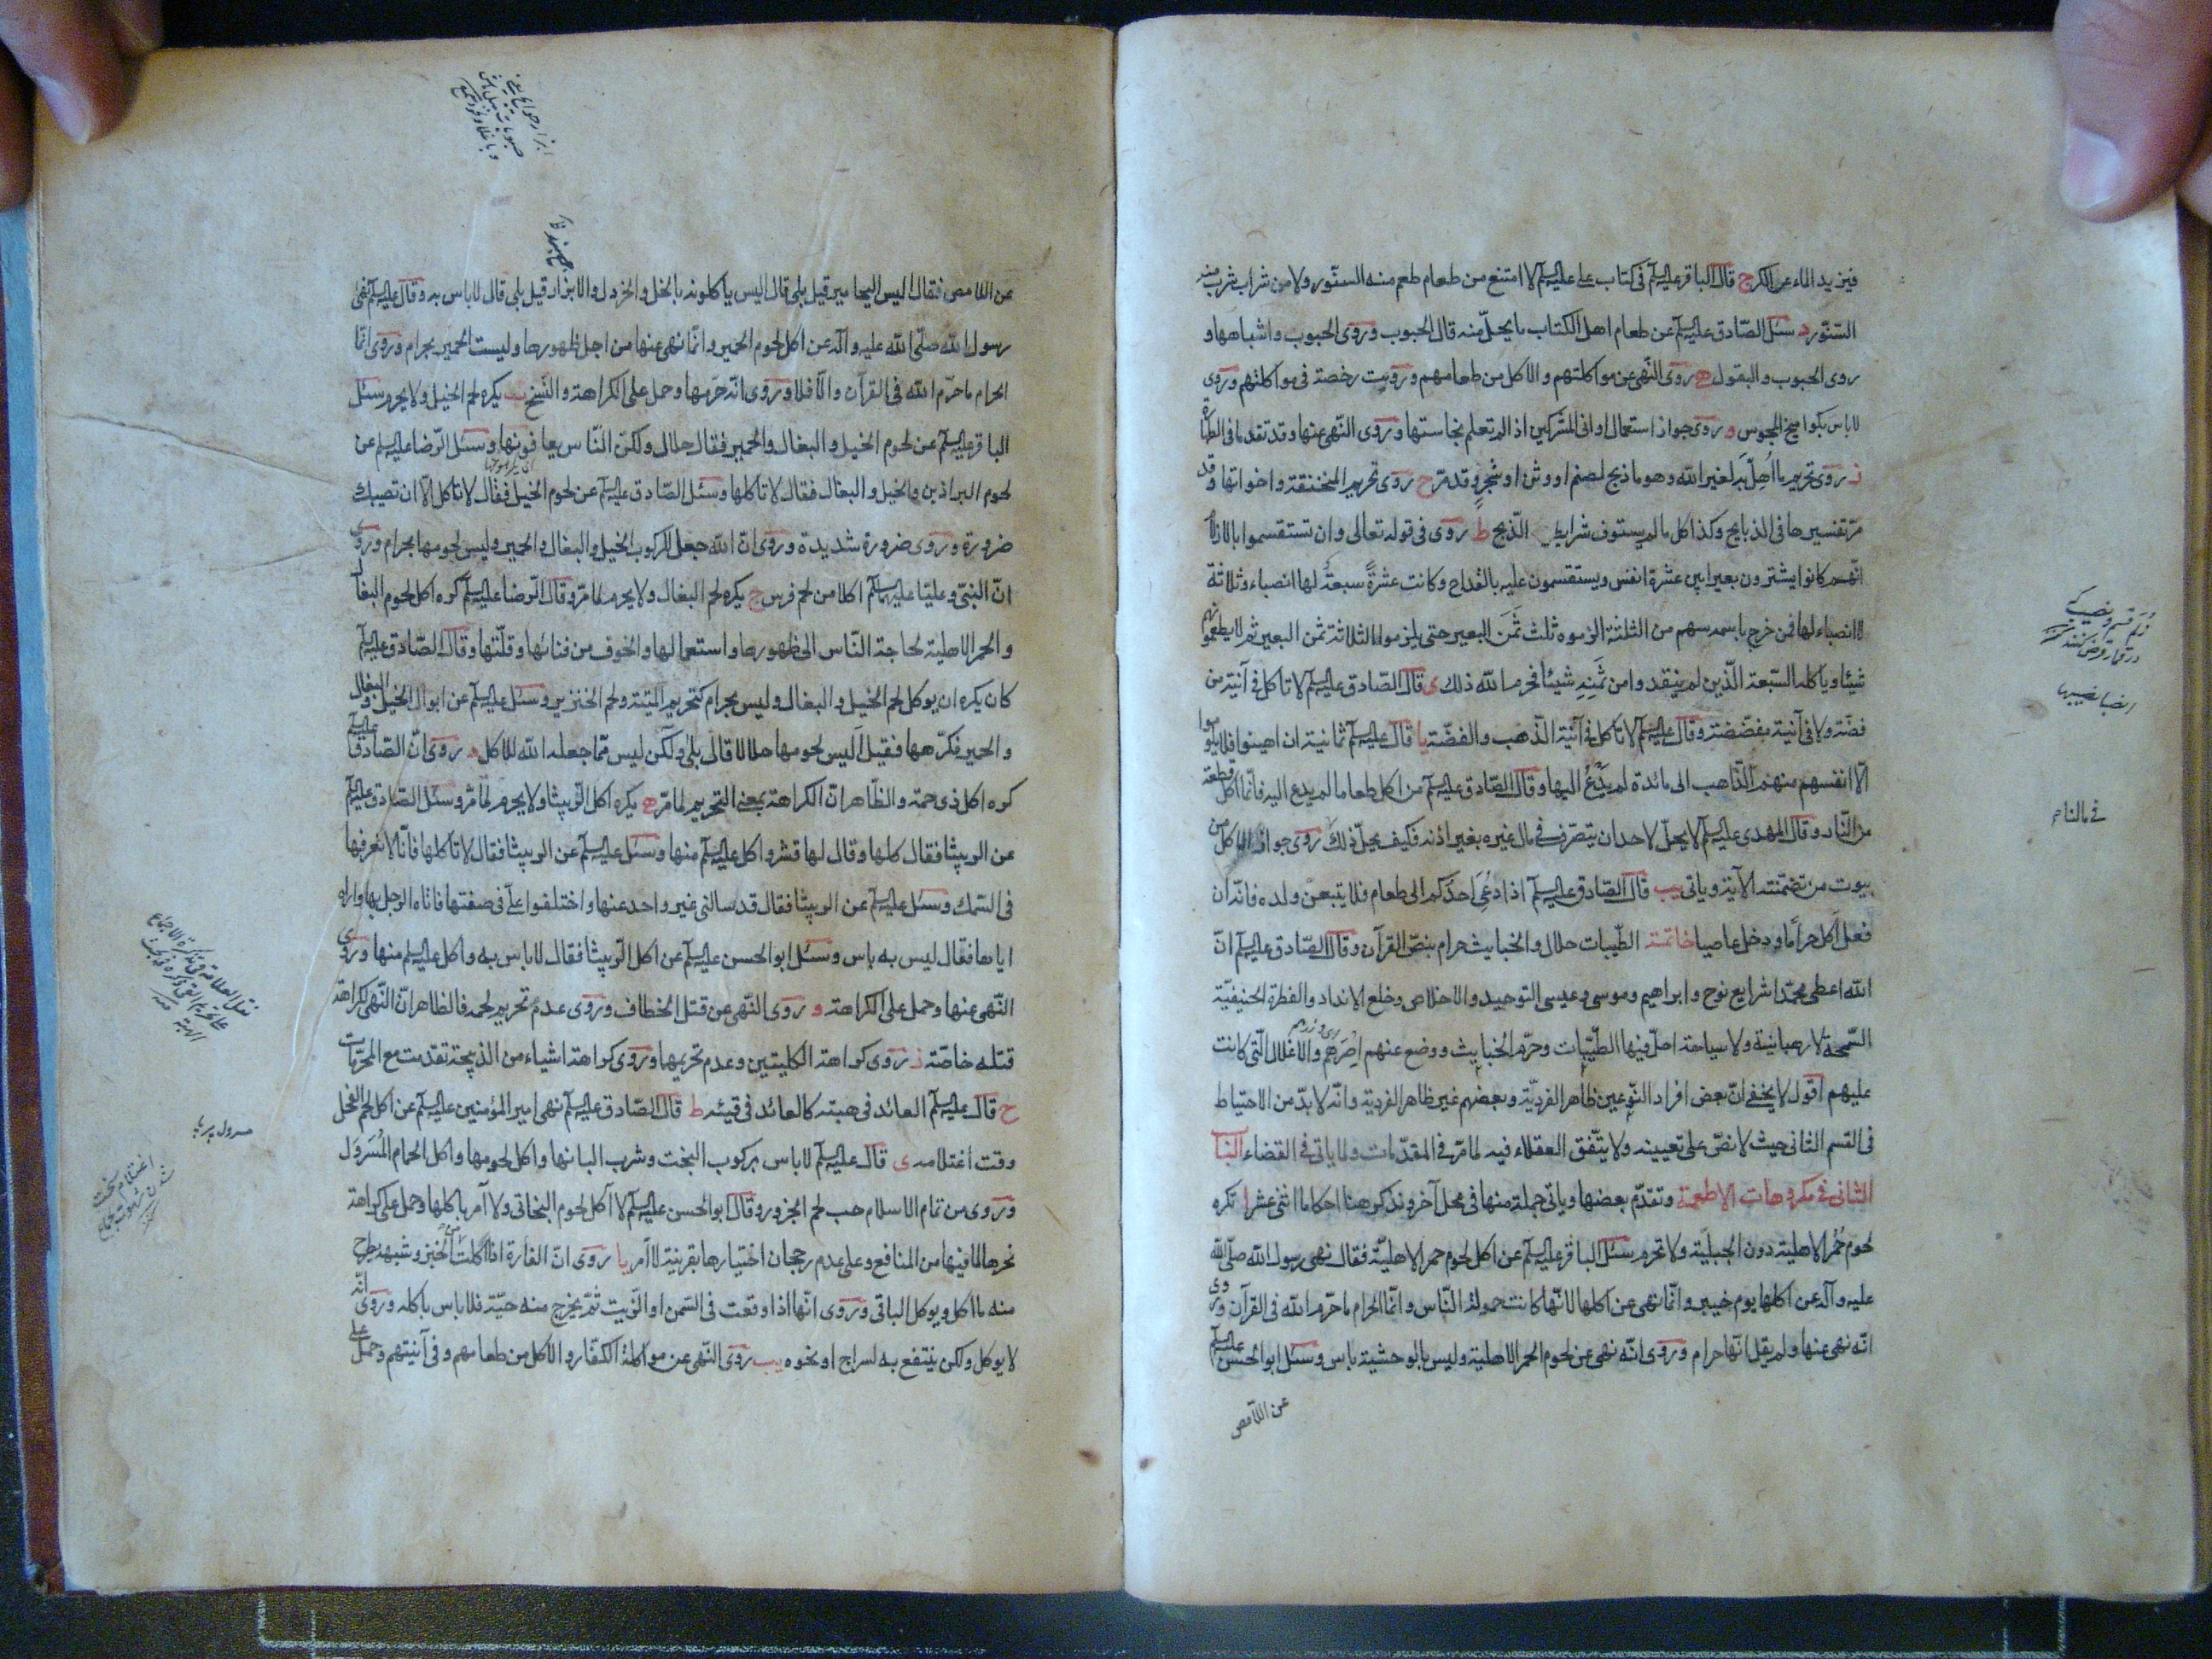 فيزيد الماء عن الكر ج قال الباقر عليه السلام في كتاب علي عليه السلام لا امتنع من طعام طعم منه السنّور ولا من شراب شرب منه
السنّور د سئل الصّادق عليه السلام عن طعام اهل الكتاب ما يحلّ منه قال الحبوب وروى الحبوب واشباهها و
روى الحبوب والبقول ه روى النّهى عن مواكلتهم والاكل من طعامهم ورويت رخصة في مواكلتهم وروى
لاباس بكوامخ المجوس و روى جواز استعمال اوانى المشركين اذا لم تعلم نجاستها وروى النّهى عنها وقد تقدما فى الطهارة
ز روى تحريم ما اُهِلّ به لغير الله وهو ما ذبح لصنم او وثن او شجر وقد مرّ ح روى تحريم المنخنقة واخواتها وقد
مرّ تفسيرها فى الذبايح وكذا كل ما لم يستوف شرايط الذّبح ط روى فى قوله تعالى وان تستقسموا بالازلام
انّهم كانوا يشترون بعيرا بين عشرة انفس ويستقسمون عليه بالقداح وكانت عشرةً سبعةٌ لها انصباء وثلاثة
لا انصباء لها فمن خرج باسمه سهم من الثلثة الزموه ثلث ثَمَن البعير حتى يلزموا الثلاثة ثمن البعير ثم لا يطعمونهم
شيئا وياكله السّبعة الّذين لم ينقدوا من ثَمَنِه شيئا فحرم الله ذلك ى قال الصّادق عليه السلام لا تاكل فى آنية من
فضّة ولا فى آنية مفضّضة وقال عليه السلام لا تاكل فى آنية الذّهب والفضّة يا قال عليه السلام ثمانية ان اهينوا فلا يلوموا
الّا انفسهم منهم الذّاهب الى مائدة لم يُدْعَ اليها وقال الصّادق عليه السلام من اكل طعاما لم يدع اليه فانّما اكل قطعة
من النّار وقال المهدى عليه السلام لا يحلّ لاحد ان يتصرّف فى مال غيره بغير اذنه فكيف يحلّ ذلك روى جواز الاكل من
بيوت من تضمّنته الآية وياتى يب قال الصّادق عليه السلام اذا دُعِىَ احدُكم الى طعام فلا يتبعنّ ولده فانّه ان
فعل اكل حرامًا ودخل عاصيا خاتمة الطّيبات حلال والخبايث حرام بنصّ القرآن وقال الصّادق عليه السلام انّ
الله اعطى محمّدا شرايع نوح وابراهيم وموسى وعيسى التوحيد والاخلاص وخلع الانداد والفطرة الحنيفيّة
السّمحة لا رهبانية ولا سياحة احلّ فيها الطيّبات وحرّم الخبايث ووضع عنهم اِصْرَهم والاغلال الّتى كانت
عليهم اقول لا يخفى انّ بعض افراد النّوعين ظاهر الفرديّة وبعضهم غير ظاهر الفردية وانّه لا بدّ من الاحتياط
فى القسم الثانى حيث لا نصّ على تعيينه ولا يتّفق العقلاء فيه لما مرّ فى المقدّمات ولما ياتى فى القضاء الباب
الثانى فى مكروهات الاطعمة وتقدّم بعضها وياتى جملة منها فى محل آخر ونذكر هنا احكاما اثنى عشر ا تكره
لحوم حُمُر الاهلية دون الجبليّة ولا تحرم سئل الباقر عليه السلام عن اكل لحوم حمر الاهليّة فقال نهى رسول الله صلّى الله
عليه وآله عن اكلها يوم خيبر وانّما نهى عن اكلها لانّها كانت حمولة النّاس وانّما الحرام ما حرّم الله فى القرآن وروى
انّه نهى عنها ولم يقل انّها حرام وروى انّه نهى عن لحوم الحمر الاهلية وليس بالوحشية باس وسئل ابو الحسن عليه السلام
عن اللامص
انصبا نصيبها
عن اللامص فقال اليس اليحامير قيل بلى قال اليس ياكلونه بالخل والخردل والابزار قيل بلى قال لاباس به وقال عليه السلام نهى
رسول الله صلّى الله عليه وآله عن اكل لحوم الحمير وانّما نهى عنها من اجل ظهورها وليست الحمير بحرام وروى انّما
الحرام ما حرّم الله فى القرآن والّا فلا وروى انّه حرّمها وحمل على الكراهة والنّسخ ب يكره لحم الخيل ولا يحرم سئل
الباقر عليه السلام عن لحوم الخيل والبغال والحمير فقال حلال ولكنّ النّاس يعافونها وسئل الرّضا عليه السلام عن
لحوم البراذين والخيل والبغال فقال لا تاكلها وسئل الصّادق عليه السلام عن لحوم الخيل فقال لا تاكل الّا ان تصيبك
ضرورة وروى ضرورة شديدة وروى انّ الله جعل للركوب الخيل والبغال والحمير وليس لحومها بحرام وروى
انّ النبىّ وعليّا عليهما السلام اكلا من لحم فرس ج يكره لحم البغال ولا يحرم لما مرّ وقال الرّضا عليه السلام كره اكل لحوم البغال
والحمر الاهلية لحاجة النّاس الى ظهورها واستعمالها والخوف من فنائها وقلّتها وقال الصّادق عليه السلام
كان يكره ان يوكل لحم الخيل والبغال وليس بحرام كتحريم الميتة ولحم الخنزير وسئل عليه السلام عن ابوال الخيل والبغال
والحمير فكرّهها فقيل اَليس لحومها حلالا قال بلى ولكن ليس ممّا جعله الله للاكل د روى انّ الصّادق عليه السلام
كره اكل ذى حمة والظّاهر انّ الكراهة بمعنى التحريم لما مرّ ه يكره اكل الرّبيثا ولا يحرم لما مرّ وسئل الصّادق عليه السلام
عن الربيثا فقال كلها وقال لها قشر واكل عليه السلام منها وسئل عليه السلام عن الربيثا فقال لا تاكلها فانّا لا نعرفها
فى السّمك وسئل عليه السلام عن الربيثا فقال قد سالنى غير واحد عنها واختلفوا علىّ فى صفتها فاتاه الرجل بها واراه
اياها فقال ليس به باس وسئل ابو الحسن عليه السلام عن اكل الرّبيثا فقال لاباس به واكل عليه السلام منها وروى
النّهى عنها وحمل على الكراهة و روى النّهى عن قتل الخطاف وروى عدم تحريم لحمه فالظاهر انّ النّهى لكراهة
قتله خاصّة ز روى كراهة الكليتين وعدم تحريمها وروى كراهة اشياء من الذبيحة تقدمت مع المحرّمات
ح قال عليه السلام العائد فى هبته كالعائد فى قيئه ط قال الصّادق عليه السلام نهى امير المؤمنين عليه السلام عن اكل لحم الفحل
وقت اغتلامه ى قال عليه السلام لاباس بركوب البخت وشرب البانها واكل لحومها واكل الحمام المُسَرْوَل
وروى من تمام الاسلام حب لحم الجزور وقال ابو الحسن عليه السلام لا آكل لحوم البخاتى ولا آمر باكلها وحمل على كراهة
نحرها لما فيها من المنافع وعلى عدم رجحان اختيارها بقرينة لا آمر يا روى انّ الفارة اذا اكلت من الخبز وشبهه يطرح
منه ما اكل ويوكل الباقى وروى انّها اذا وقعت فى السّمن او الزّيت ثمّ يخرج منه حيّة فلا باس باكله وروى انّه
لا يوكل ولكن ينتفع به لسراج او نحوه يب روى النّهى عن مواكلة الكفّار والاكل من طعامهم وفى آنيتهم وحمل على